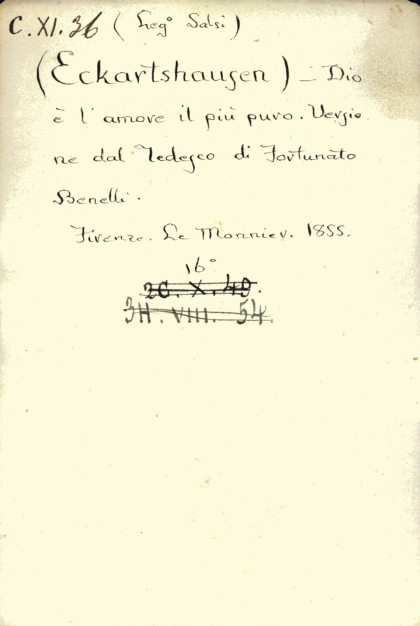 C.XI.36 (Leg° Salsi)
(Eckartshausen) - Dio
è l'amore il più puro. Versio
ne dal Tedesco di Fortunato
Benelli.
Firenze. Le Monnier. 1855.
16°
2C. X. 49.
3H. VIII. 54.